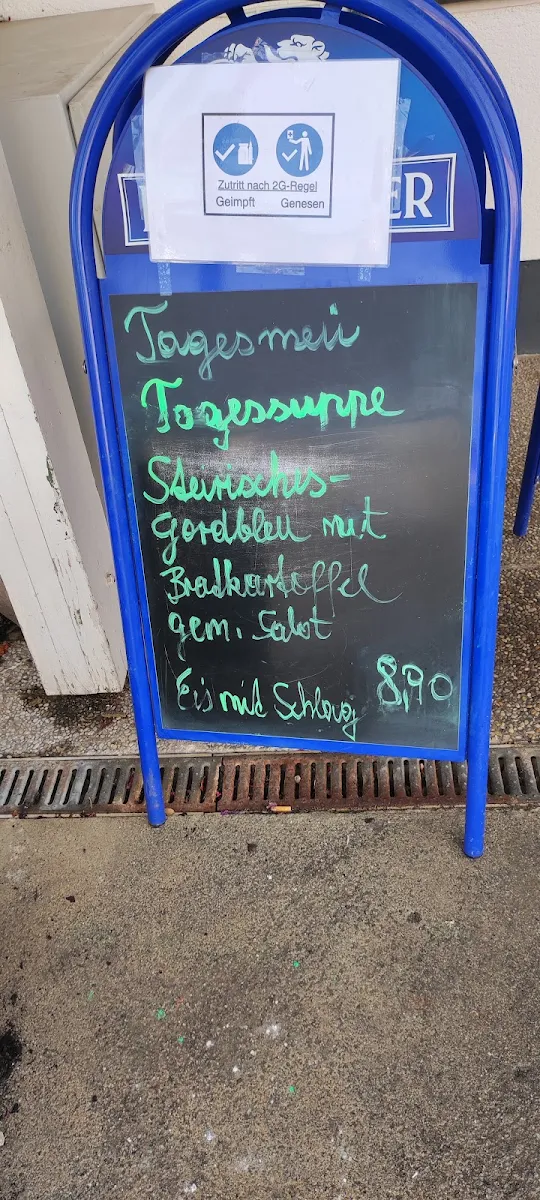 Zutritt nach 2G-Regel
Geimpft Genesen
ER
Tagesmeü
Tagessuppe
Steirisches-
Gordbleu mit
Bratkartoffel
gem. Salat
Eis mit Schlag 8,90